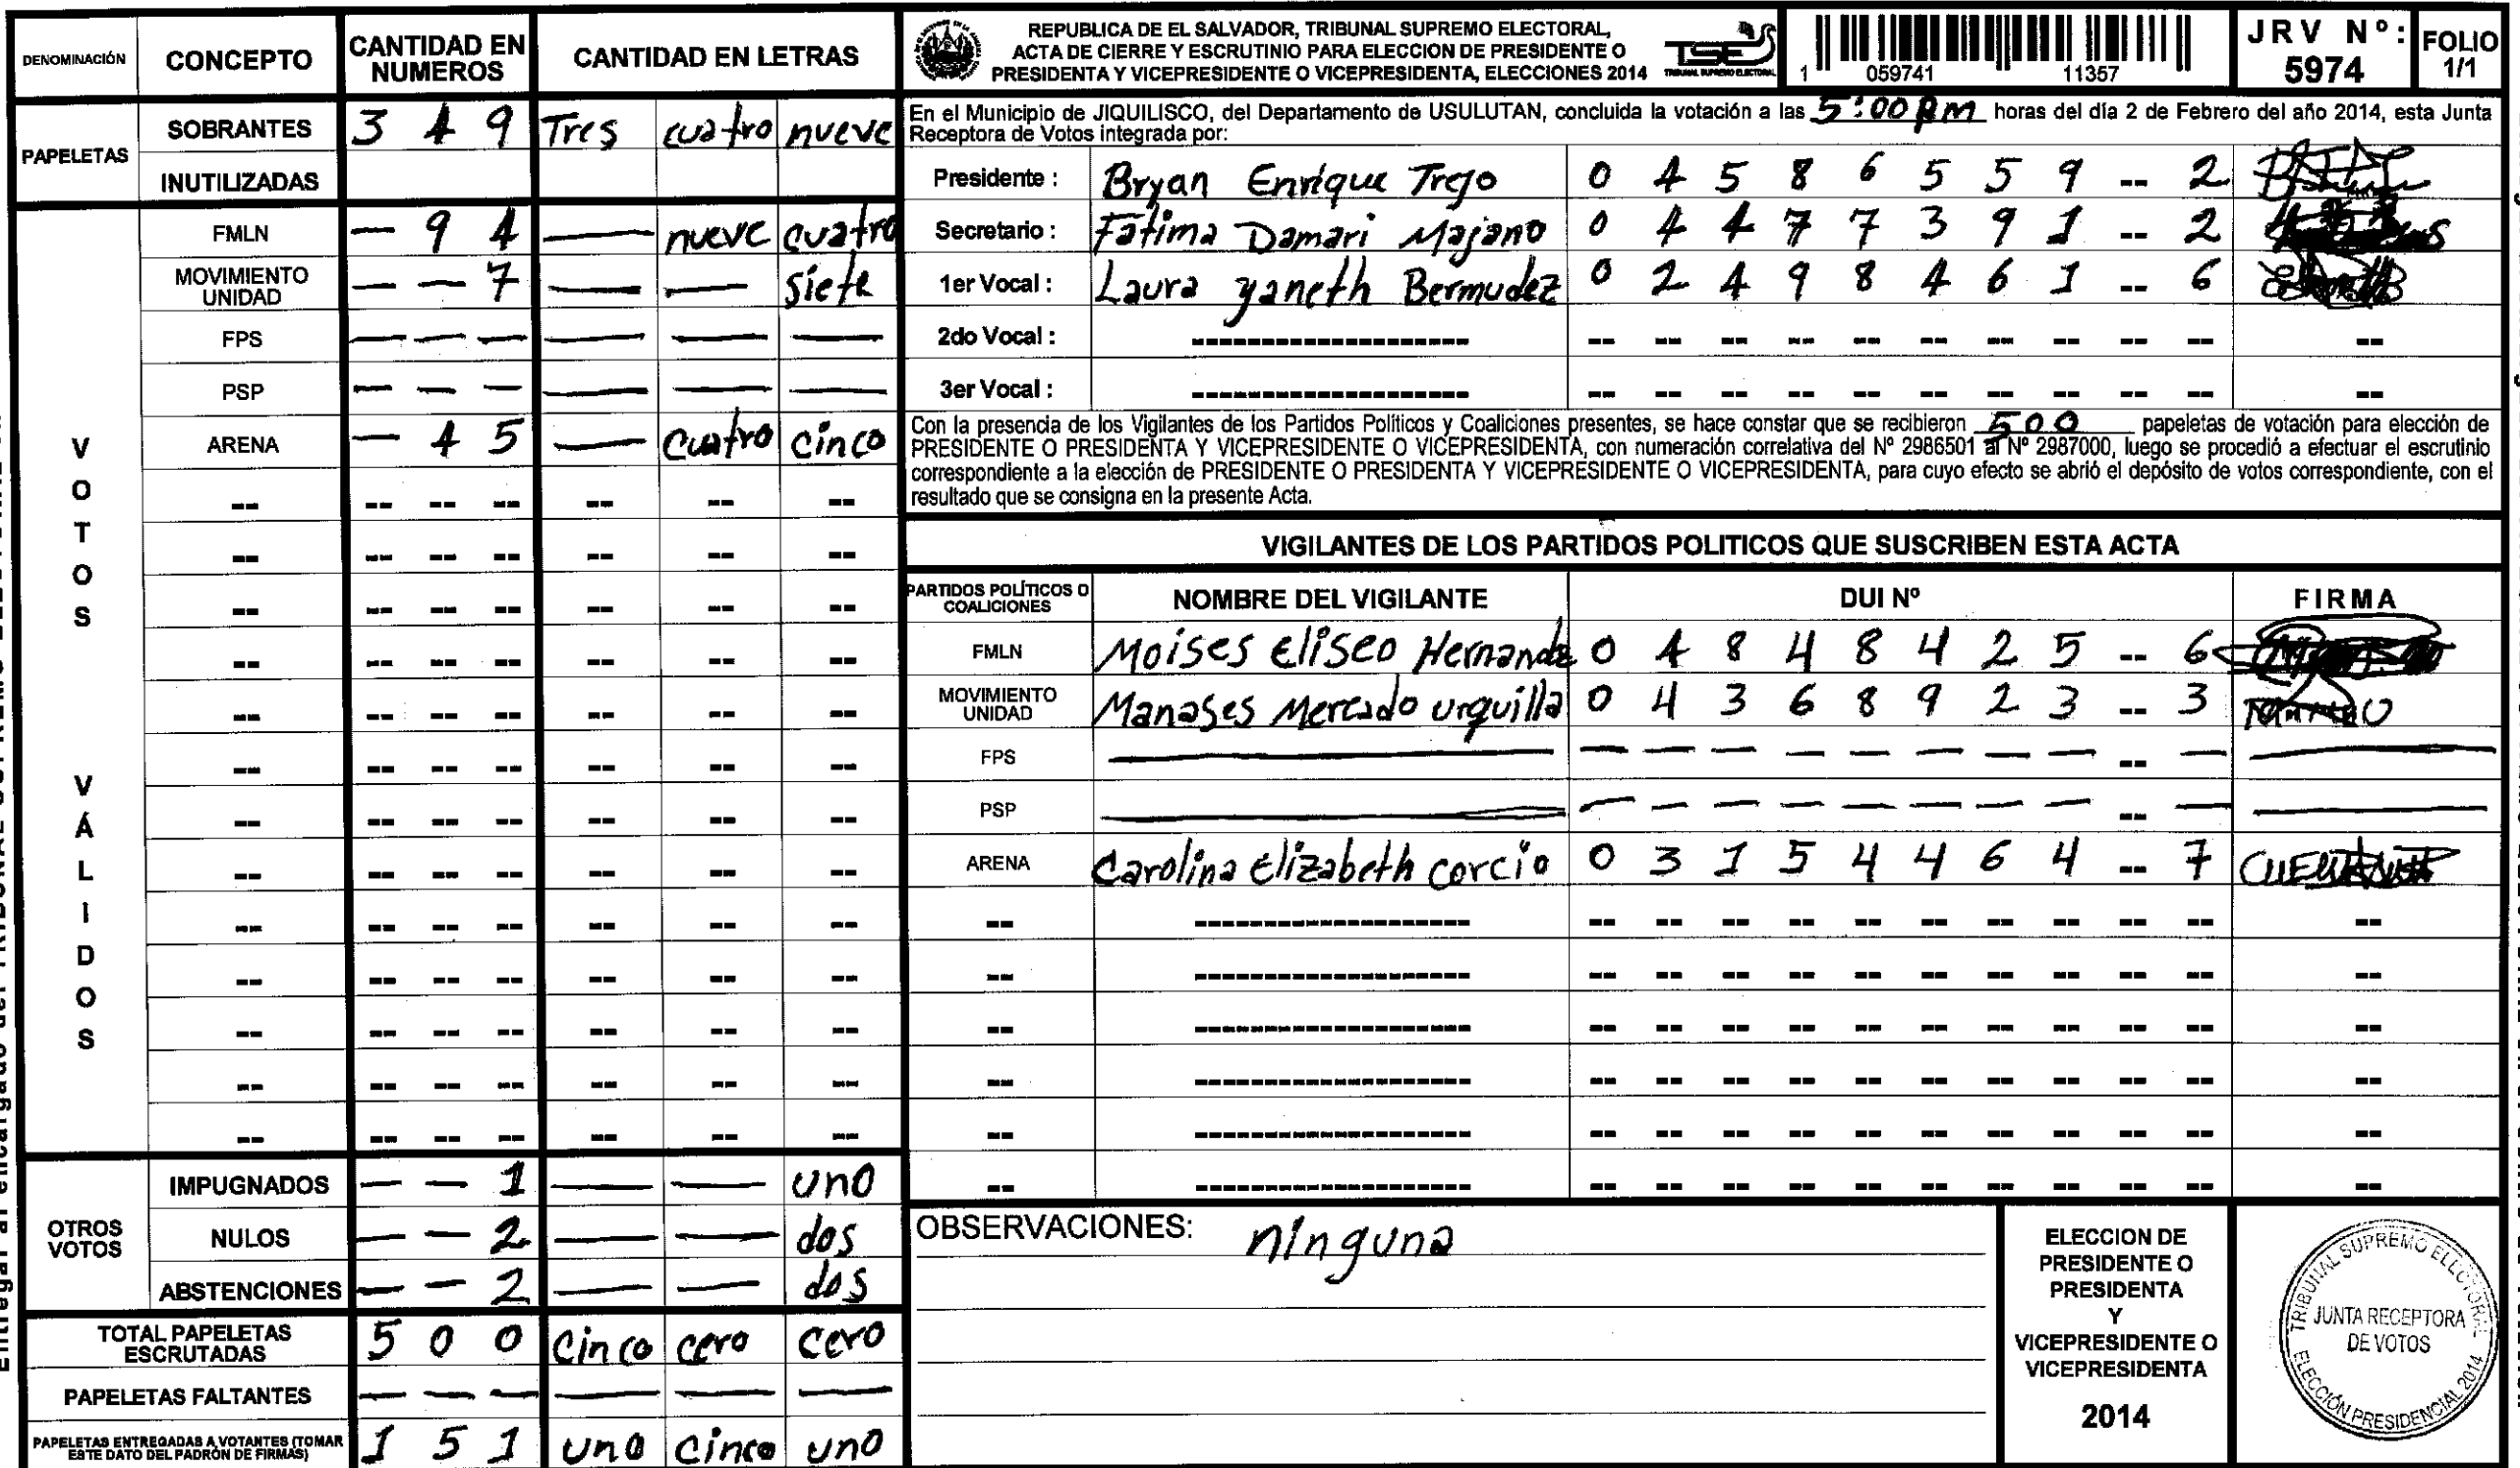 DENOMINACIÓN CONCEPTO CANTIDAD EN NUMEROS CANTIDAD EN LETRAS
PAPELETAS
SOBRANTES 3 4 9 Tres cuatro nueve
INUTILIZADAS
VOTOS VÁLIDOS
FMLN — 9 4 — nueve cuatro
MOVIMIENTO UNIDAD — — 7 — — siete
FPS — — — — — —
PSP — — — — — —
ARENA — 4 5 — cuatro cinco
OTROS VOTOS
IMPUGNADOS — — 1 — — uno
NULOS — — 2 — — dos
ABSTENCIONES — — 2 — — dos
TOTAL PAPELETAS ESCRUTADAS 5 0 0 cinco cero cero
PAPELETAS FALTANTES — — — — — —
PAPELETAS ENTREGADAS A VOTANTES (TOMAR ESTE DATO DEL PADRÓN DE FIRMAS) 1 5 1 uno cinco uno
REPUBLICA DE EL SALVADOR, TRIBUNAL SUPREMO ELECTORAL,
ACTA DE CIERRE Y ESCRUTINIO PARA ELECCION DE PRESIDENTE O
PRESIDENTA Y VICEPRESIDENTE O VICEPRESIDENTA, ELECCIONES 2014
TSE
TRIBUNAL SUPREMO ELECTORAL
1 059741 11357
JRV Nº: 5974
FOLIO 1/1
En el Municipio de JIQUILISCO, del Departamento de USULUTAN, concluida la votación a las 5:00 pm horas del día 2 de Febrero del año 2014, esta Junta
Receptora de Votos integrada por:
Presidente : Bryan Enrique Trejo 0 4 5 8 6 5 5 9 -- 2
Secretario : Fatima Damari Majano 0 4 4 7 7 3 9 1 -- 2
1er Vocal : Laura Yaneth Bermudez 0 2 4 9 8 4 6 1 -- 6
2do Vocal :
3er Vocal :
Con la presencia de los Vigilantes de los Partidos Políticos y Coaliciones presentes, se hace constar que se recibieron 500 papeletas de votación para elección de
PRESIDENTE O PRESIDENTA Y VICEPRESIDENTE O VICEPRESIDENTA, con numeración correlativa del Nº 2986501 al Nº 2987000, luego se procedió a efectuar el escrutinio
correspondiente a la elección de PRESIDENTE O PRESIDENTA Y VICEPRESIDENTE O VICEPRESIDENTA, para cuyo efecto se abrió el depósito de votos correspondiente, con el
resultado que se consigna en la presente Acta.
VIGILANTES DE LOS PARTIDOS POLITICOS QUE SUSCRIBEN ESTA ACTA
PARTIDOS POLÍTICOS O COALICIONES NOMBRE DEL VIGILANTE DUI Nº FIRMA
FMLN Moises Eliseo Hernandez 0 4 8 4 8 4 2 5 -- 6
MOVIMIENTO UNIDAD Manases Mercado Urquilla 0 4 3 6 8 9 2 3 -- 3
FPS
PSP
ARENA Carolina Elizabeth Corcio 0 3 1 5 4 4 6 4 -- 7
OBSERVACIONES: ninguna
ELECCION DE
PRESIDENTE O
PRESIDENTA
Y
VICEPRESIDENTE O
VICEPRESIDENTA
2014
TRIBUNAL SUPREMO ELECTORAL
JUNTA RECEPTORA
DE VOTOS
ELECCIÓN PRESIDENCIAL 2014